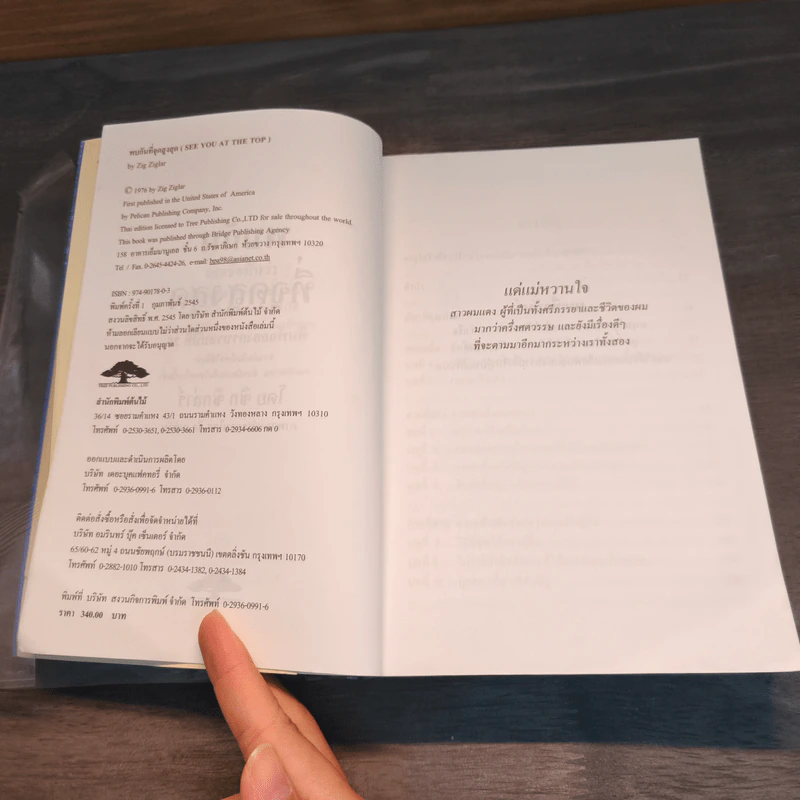 พบกันที่จุดสูงสุด ( SEE YOU AT THE TOP )
by Zig Ziglar
© 1976 by Zig Ziglar
First published in the United States of America
by Pelican Publishing Company, Inc.
Thai edition licensed to Tree Publishing Co.,LTD for sale throughout the world.
This book was published through Bridge Publishing Agency
158 อาคารเอ็มมานูเอล ชั้น 6 ถ.รัชดาภิเษก ห้วยขวาง กรุงเทพฯ 10320
Tel / Fax. 0-2645-4424-26, e-mail: bpa98@asianet.co.th
ISBN : 974-90178-0-3
พิมพ์ครั้งที่ 1 กุมภาพันธ์ 2545
สงวนลิขสิทธิ์ พ.ศ. 2545 โดย บริษัท สำนักพิมพ์ต้นไม้ จำกัด
ห้ามลอกเลียนแบบไม่ว่าส่วนใดส่วนหนึ่งของหนังสือเล่มนี้
นอกจากจะได้รับอนุญาต
TREE PUBLISHING CO., LTD
สำนักพิมพ์ต้นไม้
36/14 ซอยรามคำแหง 43/1 ถนนรามคำแหง วังทองหลาง กรุงเทพฯ 10310
โทรศัพท์ 0-2530-3651, 0-2530-3661 โทรสาร 0-2934-6606 กด 0
ออกแบบและดำเนินการผลิตโดย
บริษัท เดอะบุคแฟคทอรี่ จำกัด
โทรศัพท์ 0-2936-0991-6 โทรสาร 0-2936-0112
ติดต่อสั่งซื้อหรือสั่งเพื่อจัดจำหน่ายได้ที่
บริษัท อมรินทร์ บุ๊ค เซ็นเตอร์ จำกัด
65/60-62 หมู่ 4 ถนนชัยพฤกษ์ (บรมราชชนนี) เขตตลิ่งชัน กรุงเทพฯ 10170
โทรศัพท์ 0-2882-1010 โทรสาร 0-2434-1382, 0-2434-1384
พิมพ์ที่ บริษัท สงวนกิจการพิมพ์ จำกัด โทรศัพท์ 0-2936-0991-6
ราคา 340.00 บาท
แด่แม่หวานใจ
สาวผมแดง ผู้ที่เป็นทั้งศรีภรรยาและชีวิตของผม
มากว่าครึ่งศตวรรษ และยังมีเรื่องดีๆ
ที่จะตามมาอีกมากระหว่างเราทั้งสอง